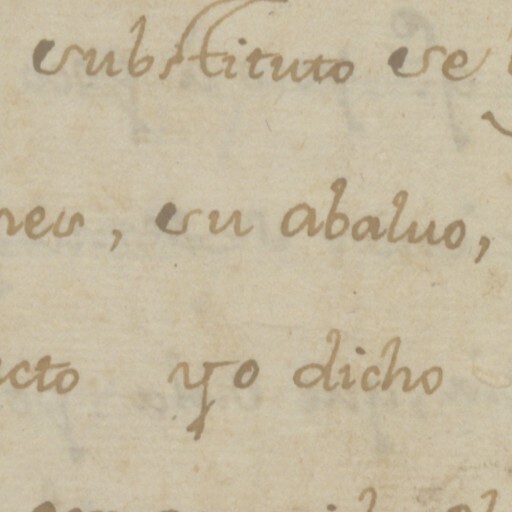 substituto se
nes, su abaluo,
cto yo dicho